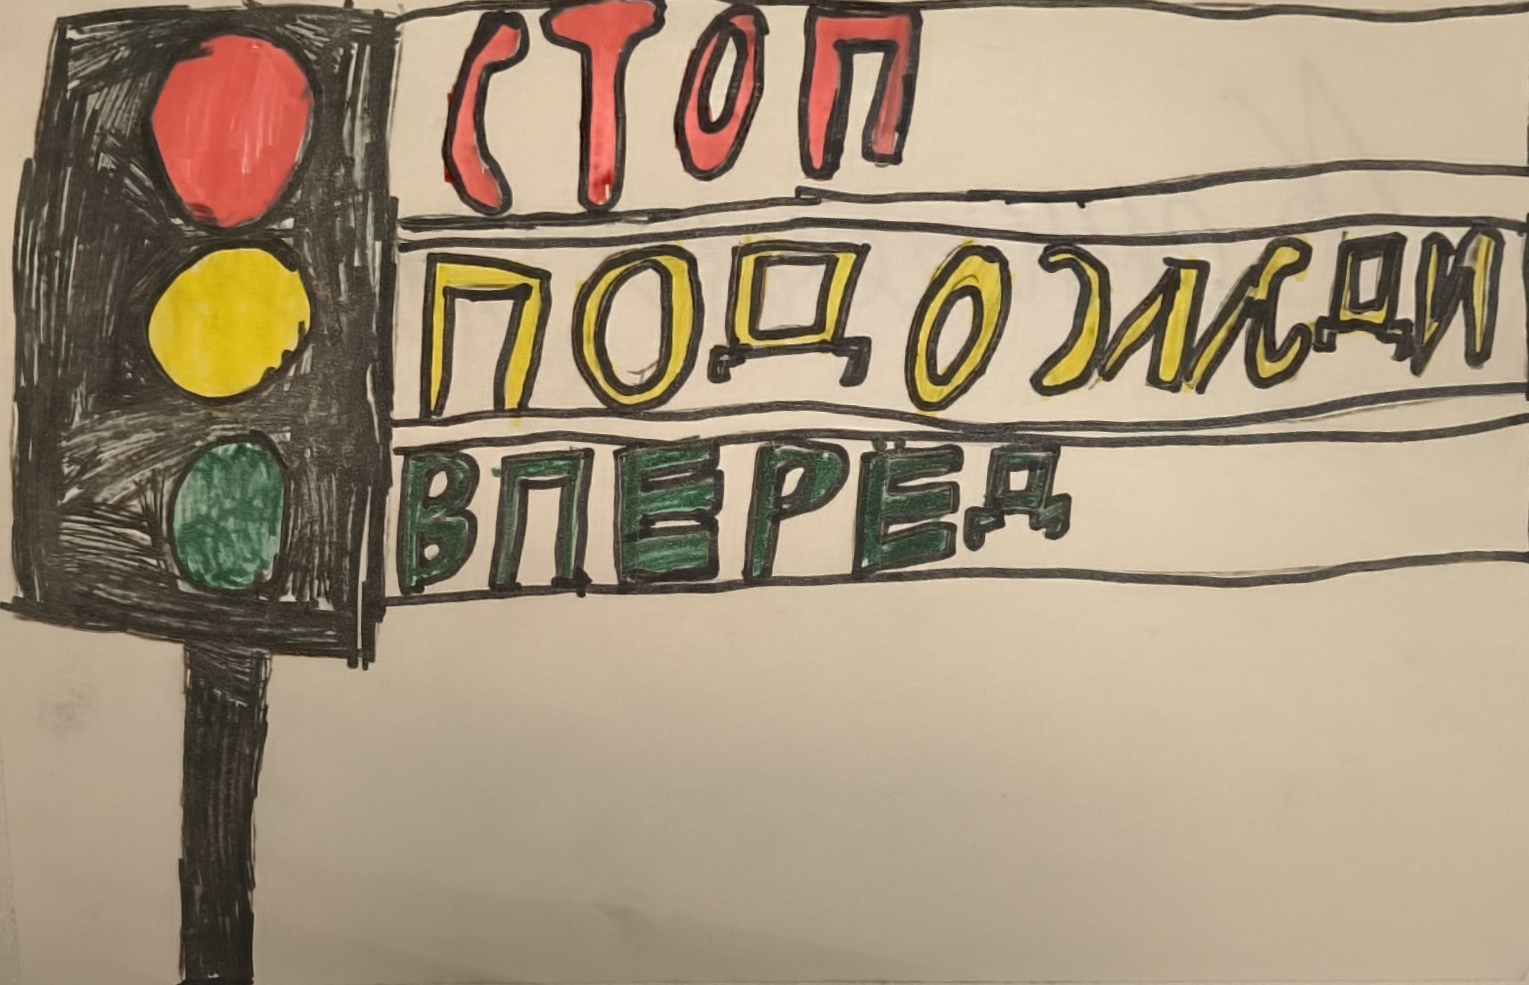 СТОП
ПОДОЖДИ
ВПЕРЕД